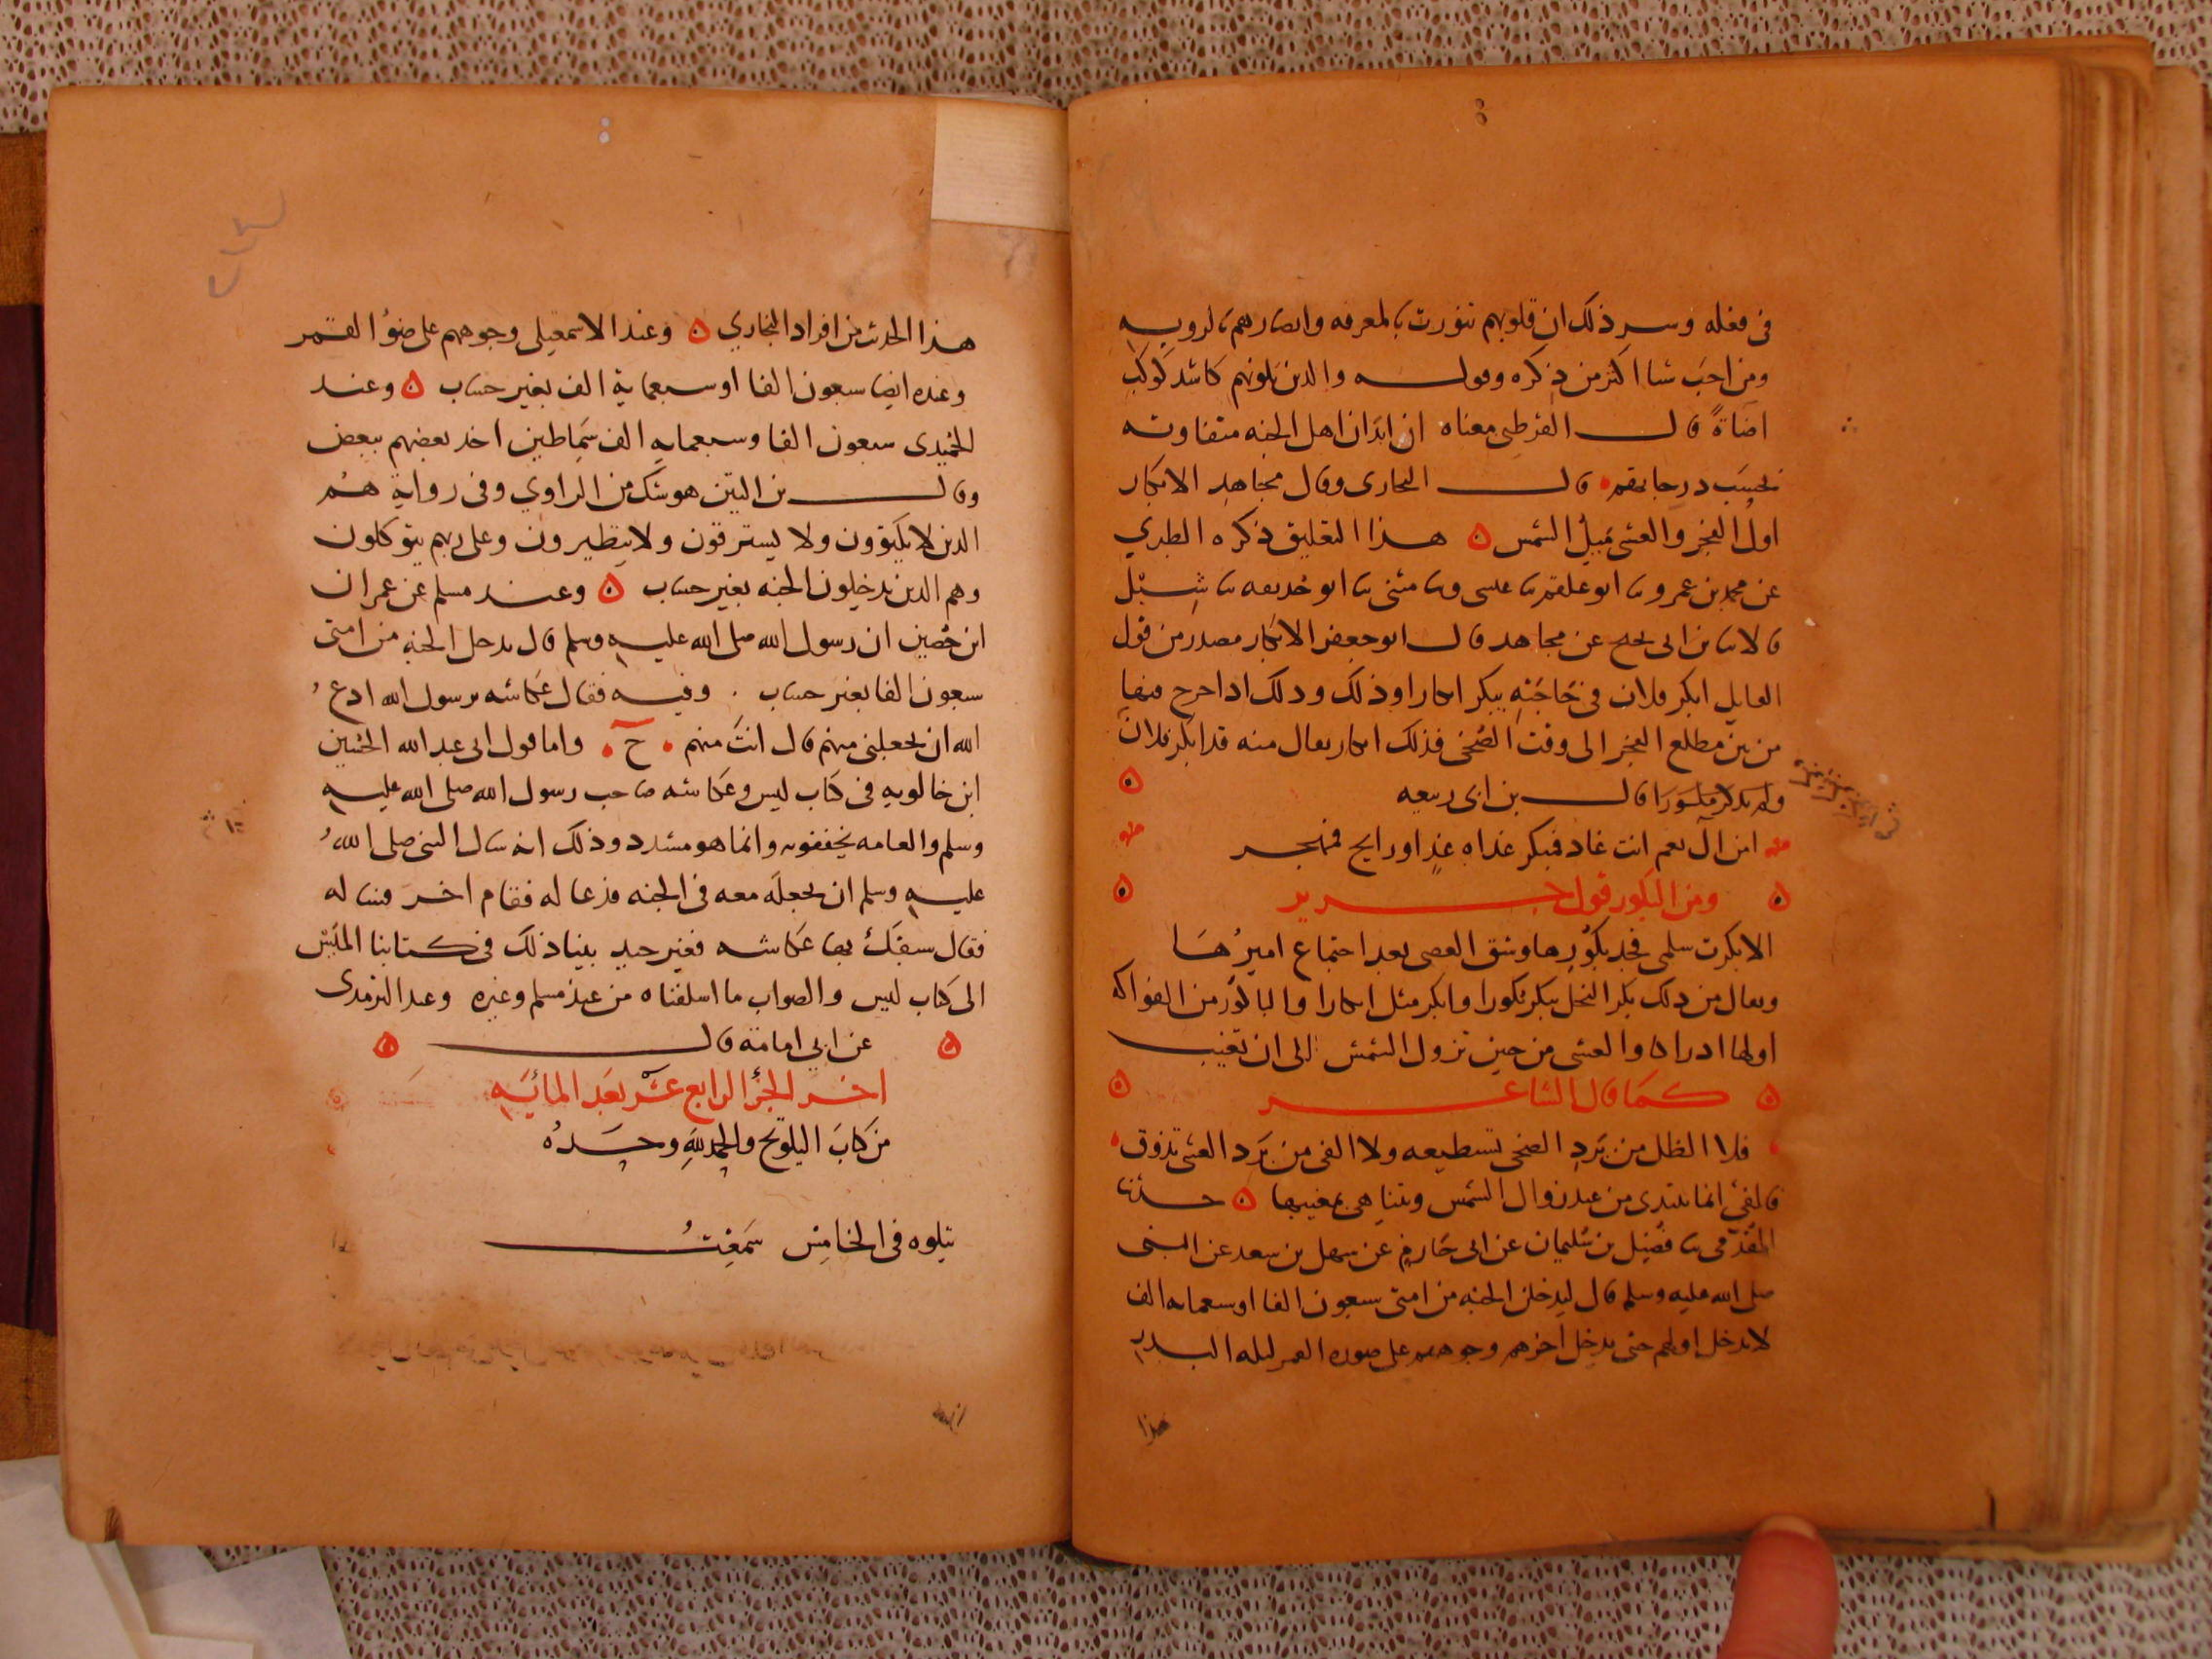 في فعله وسر ذلك ان قلوبهم تنورت بالمعرفه وابصارهم بالرويه
ومن احب شيا اكثر من ذكره وقوله والدين يلونهم كاشد كوكب
اضاةً قال القرطبي معناه ان ابدان اهل الجنه متفاوته
بحسب درجاتهم قال البخارى وقال مجاهد الابكار
اول الفجر والعشى ميل الشمس هذا التعليق ذكره الطبري
عن محمد بن عمرو ثنا ابو عاصم ثنا عيسى وثنا مثنى ثنا ابو حذيفه ثنا شبل
قالا ثنا بن ابى نجيح عن مجاهد قال ابو جعفر الابكار مصدر من قول
القايل ابكر فلان في حاجته يبكر ابكارا وذلك ودلك ادا خرج فيها
من بين مطلع الفجر الى وقت الضحى فذلك ابكار يقال منه قد ابكر فلان
قال بن ابى ربيعه
امن ال نعم انت غاد فمبكر غداه غدٍ او رايح فمهجر
ومن البكور قول جرير
الا بكرت سلمى فجد بكورها وشق العصى بعد اجتماع اميرها
ويقال من دلك بكر النخل يبكر بكورا وابكر مثل ابكارا والباكور من الفواكه
اولها ادراكا والعشى من حين تزول الشمس الى ان تغيب
كما قال الشاعر
فلا الظل من برد الضحى تستطيعه ولا الفى من برد العشى تذوق
فالفئ انما يبتدى من عند زوال الشمس ويتناهى بمغيبها حدثنا
المقدمى ثنا فضيل بن سليمان عن ابى حازم عن سهل بن سعد عن النبى
صلى الله عليه وسلم قال ليدخلن الجنه من امتى سبعون الفا او سبعمايه الف
لا يدخل اولهم حتى يدخل اخرهم وجوههم على صوره القمر ليله البدر
هذا
هذا الحديث من افراد البخاري وعند الاسمعيلى وجوههم على ضوُ القمر
وعنده ايضا سبعون الفا او سبعماية الف بغير حساب وعند
الحميدى سبعون الفا وسبعمايه الف سماطين اخد بعضهم ببعض
وقال بن التين هو شك من الراوي وفى رواية هم
الدين لا يكتوون ولا يسترقون ولا يتطيرون وعلى ربهم يتوكلون
وهم الدين يدخلون الجنه بغير حساب وعند مسلم عن عمران
ابن حصين ان رسول الله صلى الله عليه وسلم قال يدخل الجنه من امتى
سبعون الفا بغير حساب وفيه فقال عكاشه يرسول الله ادع
الله ان يجعلنى منهم قال انت منهم ح واما قول ابى عبد الله الحسين
ابن خالويه فى كتاب ليس وعكاشه صاحب رسول الله صلى الله عليه
وسلم والعامه يخففونه وانما هو مشدد وذلك انه سال النبى صلى الله
عليه وسلم ان يجعله معه فى الجنه فدعا له فقام اخر فساله
فقال سبقك بها عكاشه فغير جيد بينا ذلك فى كتابنا
الى كتاب ليس والصواب ما اسلفناه من عند مسلم وغيره وعند الترمدى
عن ابي امامة قال
اخر الجزُ الرابع عشر بعد المائيه
من كتاب التلويح والحمد لله وحده
يتلوه فى الخامس سمعتُ